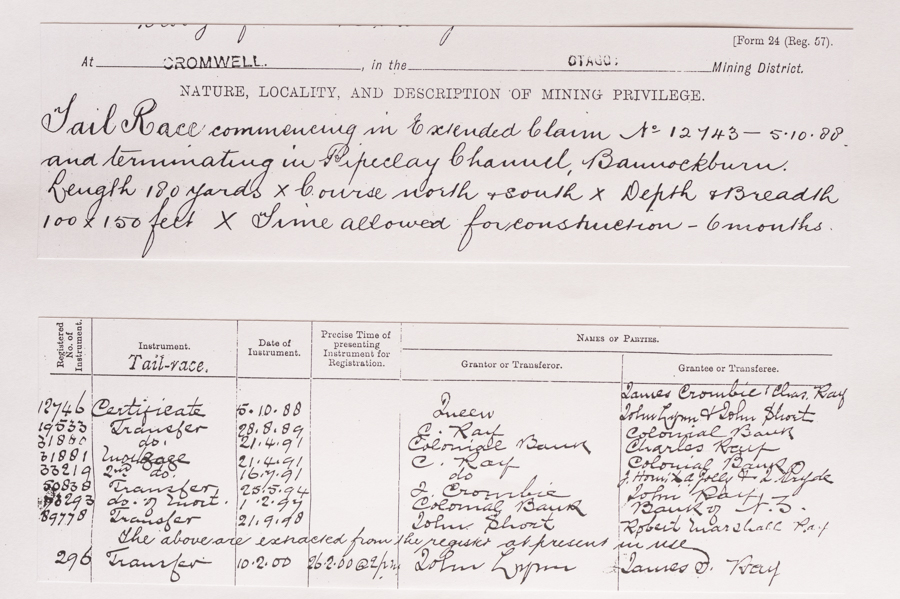 [Form 24 (Reg. 57).
At CROMWELL. , in the OTAGO: Mining District.
NATURE, LOCALITY, AND DESCRIPTION OF MINING PRIVILEGE.
Tail Race commencing in Extended Claim No 12743 – 5.10.88.
and terminating in Pipeclay Channel, Bannockburn.
Length 180 yards x Course north & south x Depth & Breadth
100 x 150 feet X Time allowed for construction – 6 months.
Registered No. of Instrument.
Instrument.
Tail-race.
Date of Instrument.
Precise Time of presenting Instrument for Registration.
NAMES OF PARTIES.
Grantor or Transferor.
Grantee or Transferee.
James Crombie Chas. Ray
12746 Certificate 5.10.88 Queen John Lynn & John Short
19533 Transfer 28.8.89 C. Ray Colonial Bank
do. 21.4.91 Colonial Bank Charles Ray
31881 Mortgage 21.4.91 C. Ray Colonial Bank
33219 2nd do. 16.7.91 do
50838 Transfer 25.5.94 J. Crombie John Ray
do. of Mort. 1.2.97 Colonial Bank Bank of N.Z.
89778 Transfer 21.9.98 John Short Robert Marshall Ray
The above are extracted from the register at present in use
296 Transfer 10.2.00 26.2.00 @ 2 pm John Lynn James D. Ray